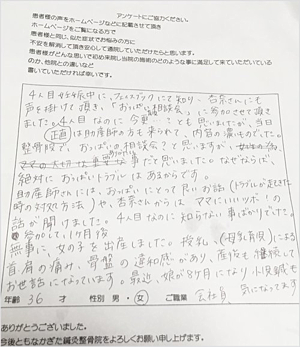 アンケートにご協力ください。
患者様の声をホームページなどに記載させて頂き
ホームページをご覧になる方で
患者様と同じ、似た症状でお悩みの方に
不安を解消して頂き安心して通院していただけたらと思います。
患者様がどんな思いで初め来院し当院の施術のどのような事に満足して来ていただいている
のか、他院との違いなど
書いていただければ幸いです。
4人目妊娠中に、フェイスブックにて知り、杏奈さんにも
声を掛けて頂き、"おっぱい相談会"に参加させて頂き
ました。4人目なのに今更 とも思いましたが、当日
正直 は助産師の方も来られて、内容の濃ものでした。
整骨院で、おっぱいの相談会?と思いますが、
事だと思いました。なぜならば、
絶対におっぱいトラブルはあるからです。
助産師さんには、おっぱいにとって良いお話(トラブルが起きた
時の対処方法)や、杏奈さんからは ママにいいツボ!の
話が聞けました。4人目なのに知らない事ばかりでした。
参加して1ヶ月後
無事に、女の子を出産しました。授乳、(母乳育児)による
首肩の痛み、骨盤の違和感があり、産後も継続して
お世話になっています。最近、娘が8ヶ月になり小児鍼も
気になってます
年齢 36 才 性別 男・女 ご職業 会社員
ありがとうございました。
今後ともなかざわ鍼灸整骨院をよろしくお願い申し上げます。